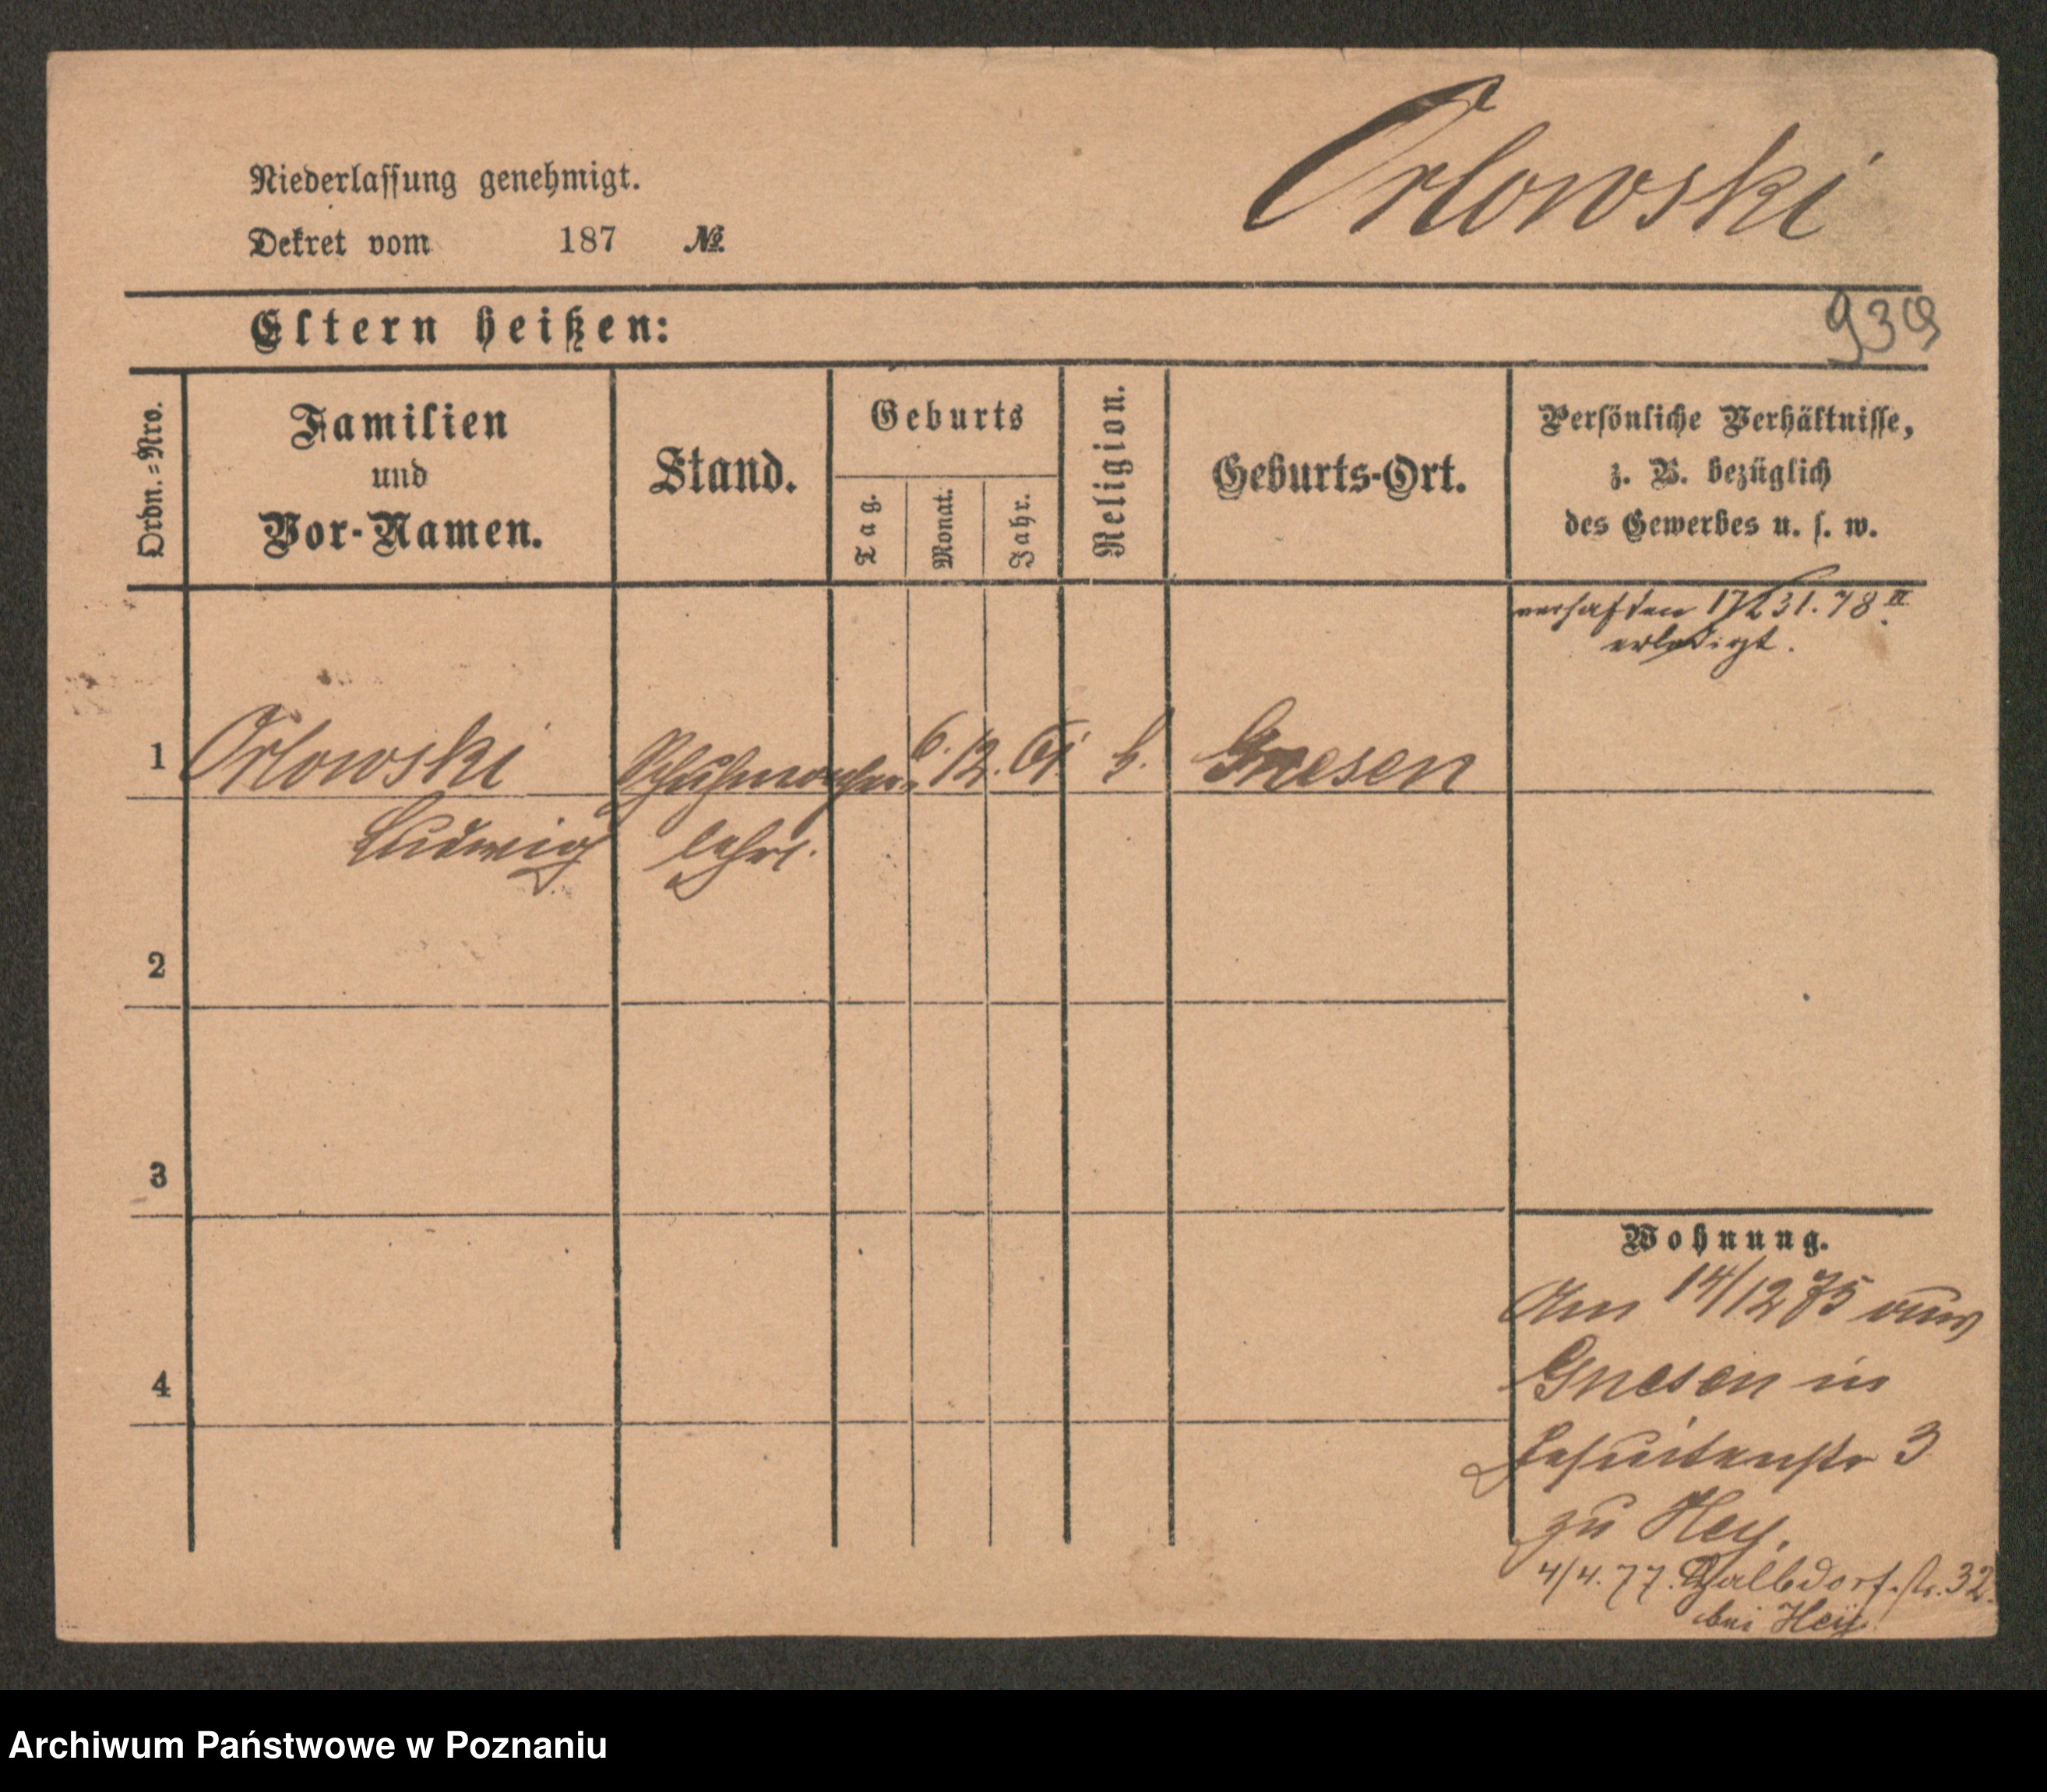 Orlowski
Niederlassung genehmigt.
Dekret vom 187 №
939
Eltern heißen:
Ordn.=Nro.
Familien
und
Vor-Namen.
Stand.
Geburts
Tag.
Monat.
Jahr.
Religion.
Geburts-Ort.
Persönliche Verhältnisse,
z. B. bezüglich
des Gewerbes u. s. w.
erledigt.
1 Orlowski Schuhmacher= 6. 12. 61. k. Gnesen
Ludwig lehrl.
2
3
4
Wohnung.
Am 14/12 75 aus
Gnesen in
Jesuitenstr 3
zu Hey.
4/4. 77. Halbdorf.str. 32.
bei Hey
Archiwum Państwowe w Poznaniu